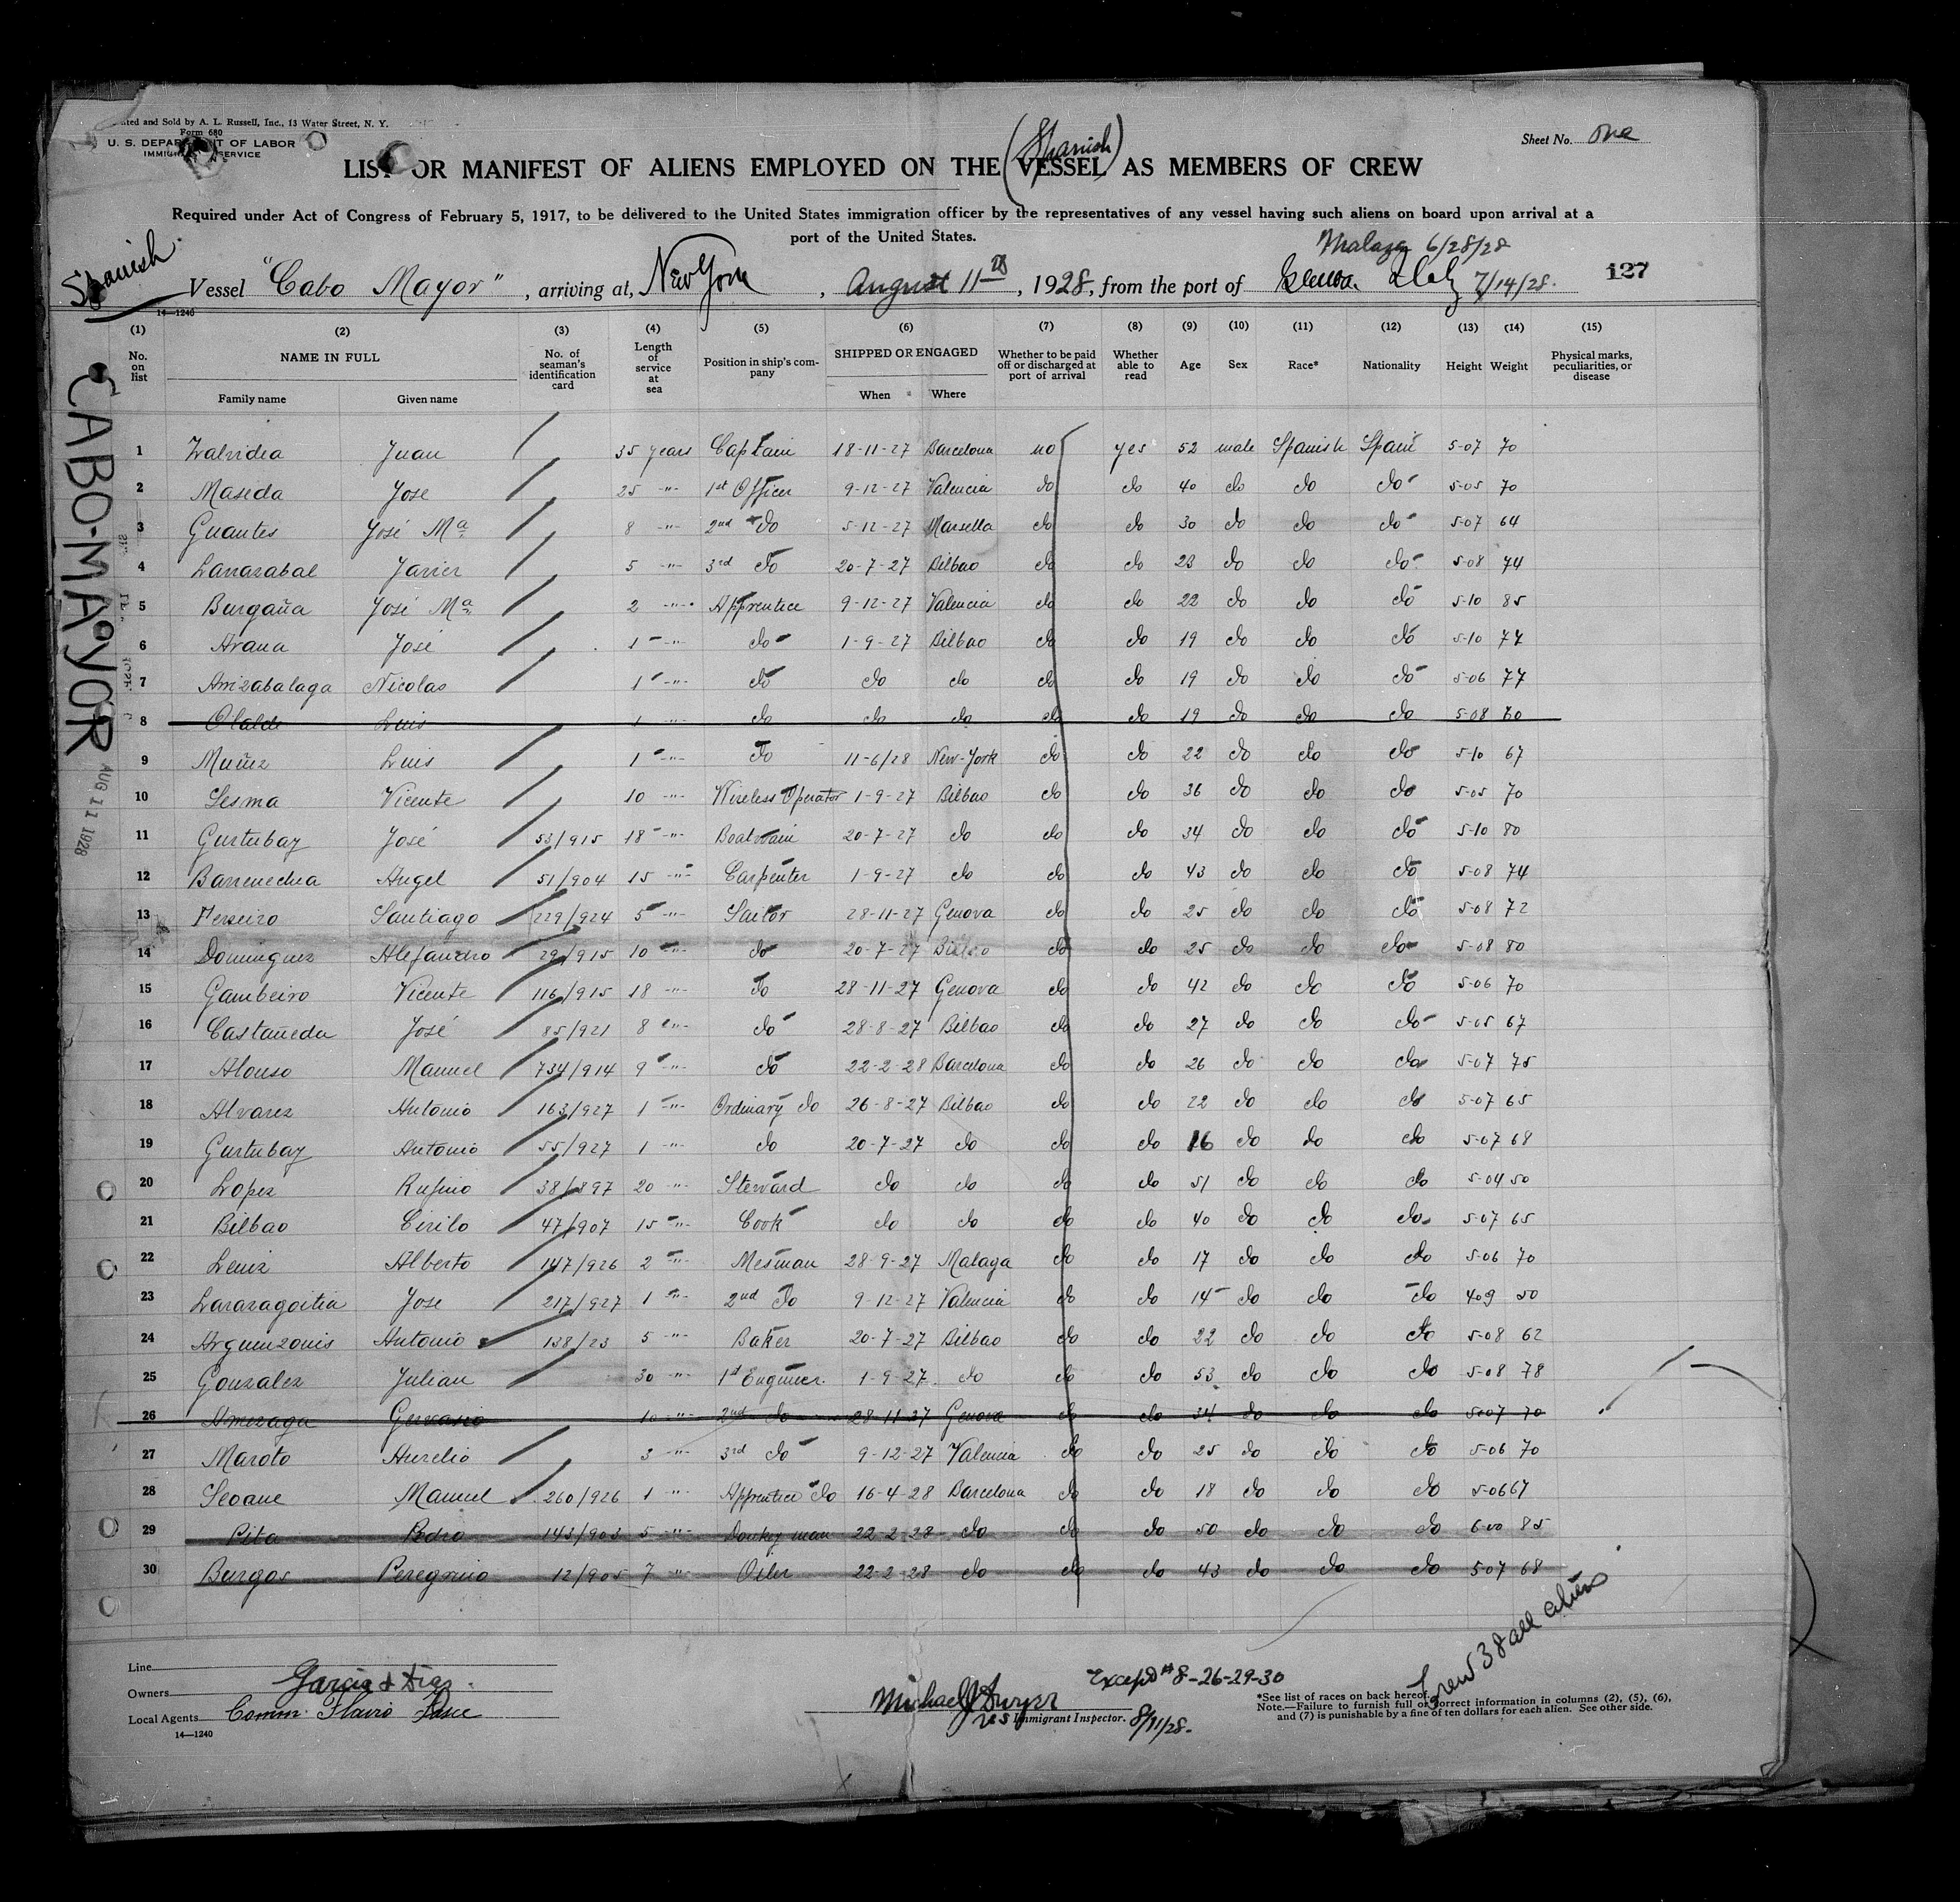 Printed and Sold by A. L. Russell, Inc., 13 Water Street, N. Y.
Form 680
U. S. DEPARTMENT OF LABOR
IMMIGRATION SERVICE
Sheet No. One
(Spanish)
LIST OR MANIFEST OF ALIENS EMPLOYED ON THE VESSEL AS MEMBERS OF CREW
Required under Act of Congress of February 5, 1917, to be delivered to the United States immigration officer by the representatives of any vessel having such aliens on board upon arrival at a
port of the United States.
Malaga 6/28/28
Spanish
Vessel "Cabo Mayor", arriving at, New York, August 11th, 1928, from the port of Genoa. Italy 7/14/28. 127
14—1240
(1) (2) (3) (4) (5) (6) (7) (8) (9) (10) (11) (12) (13) (14) (15)
No. on list NAME IN FULL Family name Given name No. of seaman's identification card Length of service at sea Position in ship's company SHIPPED OR ENGAGED When Where Whether to be paid off or discharged at port of arrival Whether able to read Age Sex Race* Nationality Height Weight Physical marks, peculiarities, or disease
CABO-MAYOR
AUG 11 1928
1 Zalvidea Juan 35 years Captain 18-11-27 Barcelona no yes 52 male Spanish Spain 5-07 70
2 Maseda Jose 25 -"- 1st Officer 9-12-27 Valencia do do 40 do do do 5-05 70
3 Guantes José Mª 8 -"- 2nd do 5-12-27 Marsella do do 30 do do do 5-07 64
4 Larrazabal Javier 5 -"- 3rd do 20-7-27 Bilbao do do 23 do do do 5-08 74
5 Burgaña José Mª 2 -"- Apprentice 9-12-27 Valencia do do 22 do do do 5-10 85
6 Arana José 1 -"- do 1-9-27 Bilbao do do 19 do do do 5-10 77
7 Arrizabalaga Nicolas 1 -"- do do do do do 19 do do do 5-06 77
8 Olalde Luis 1 -"- do do do do do 19 do do do 5-08 60
9 Muñiz Luis 1 -"- do 11-6/28 New-York do do 22 do do do 5-10 67
10 Lesma Vicente 10 -"- Wireless Operator 1-9-27 Bilbao do do 36 do do do 5-05 70
11 Gurtubay José 53/915 18 -"- Boatswain 20-7-27 do do do 34 do do do 5-10 80
12 Barrenechea Angel 51/904 15 -"- Carpenter 1-9-27 do do do 43 do do do 5-08 74
13 Ferreiro Santiago 229/924 5 -"- Sailor 28-11-27 Genova do do 25 do do do 5-08 72
14 Dominguez Alejandro 29/915 10 -"- do 20-7-27 Bilbao do do 25 do do do 5-08 80
15 Gambeiro Vicente 116/915 18 -"- do 28-11-27 Genova do do 42 do do do 5-06 70
16 Castañeda José 85/921 8 -"- do 28-8-27 Bilbao do do 27 do do do 5-05 67
17 Alonso Manuel 734/914 9 -"- do 22-2-28 Barcelona do do 26 do do do 5-07 75
18 Alvarez Antonio 163/927 1 -"- Ordinary do 26-8-27 Bilbao do do 22 do do do 5-07 65
19 Gurtubay Antonio 55/927 1 -"- do 20-7-27 do do do 16 do do do 5-07 68
20 Lopez Rufino 38/897 20 -"- Steward do do do do 51 do do do 5-04 50
21 Bilbao Cirilo 47/907 15 -"- Cook do do do do 40 do do do 5-07 65
22 Leniz Alberto 147/926 2 -"- Mesman 28-9-27 Malaga do do 17 do do do 5-06 70
23 Larazagoitia Jose 217/927 1 -"- 2nd do 9-12-27 Valencia do do 14 do do do 409 50
24 Arguinzonis Antonio 138/23 5 -"- Baker 20-7-27 Bilbao do do 22 do do do 5-08 62
25 Gonzalez Julian 30 -"- 1st Engineer. 1-9-27 do do do 53 do do do 5-08 78
26 Amezaga Gervasio 10 -"- 2nd do 28-11-27 Genova do do 34 do do do 5-07 70
27 Maroto Aurelio 3 -"- 3rd do 9-12-27 Valencia do do 25 do do do 5-06 70
28 Seoane Manuel 260/926 1 -"- Apprentice do 16-4-28 Barcelona do do 18 do do do 5-06 67
29 Pita Pedro 143/903 5 -"- Donkey man 22-2-28 do do do 50 do do do 6-00 85
30 Burgos Peregrino 12/905 7 -"- Oiler 22-2-28 do do do 43 do do do 5-07 68
Crew 38 all aliens
Line
Owners Garcia & Diaz.
Local Agents Comm. Flavio
14—1240
Except # 8-26-29-30
Michael J Dwyer
US Immigrant Inspector. 8/11/28.
*See list of races on back hereof.
Note.—Failure to furnish full or correct information in columns (2), (5), (6),
and (7) is punishable by a fine of ten dollars for each alien. See other side.